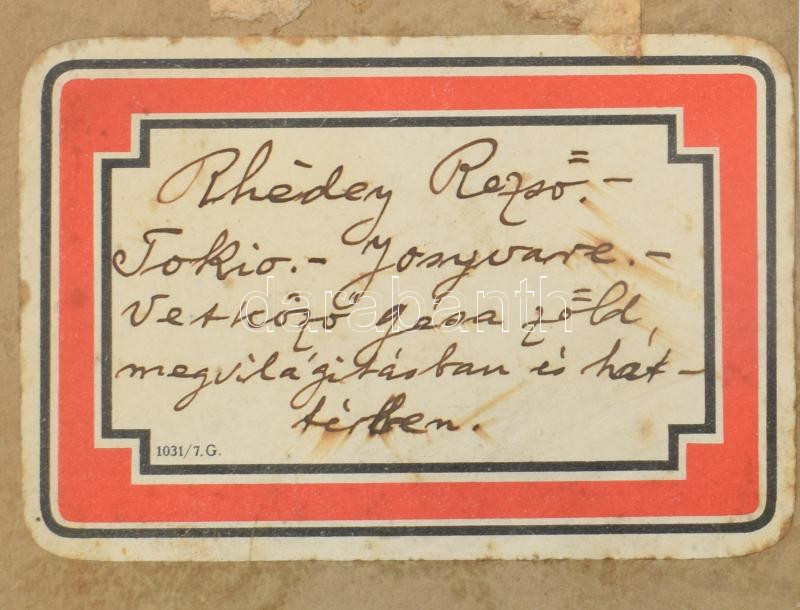 Rhédey Rezső.-
Tokio.- Josyvare.-
Vetkőző gésa zöld,
megvilágitásban és hát-
térben.
1031/7.G.
darabanth